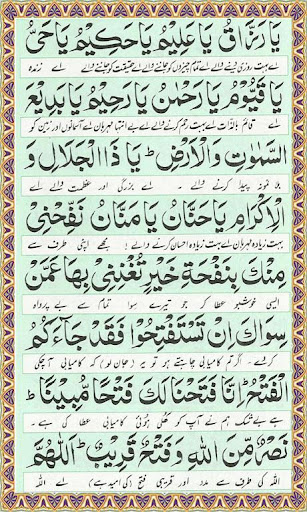 يَا رَزَّاقُ يَا عَلِيْمُ يَا حَكِيْمُ يَا حَيُّ
اے بہت روزی دینے والے اے تمام چیزوں کو جاننے والے اے حقیقت کو جاننے والے اے زندہ
يَا قَيُّوْمُ يَا رَحْمٰنُ يَا رَحِيْمُ يَا بَدِيْعَ
اے قائم بالذات اے بہت رحم کرنے والے اے بے انتہا مہربان اے آسمانوں اور زمین کو
السَّمٰوٰتِ وَالْاَرْضِ ؕ يَا ذَا الْجَلَالِ وَ
بلا نمونہ پیدا کرنے والے - اے بزرگی اور عظمت والے اے
الْاِكْرَامِ يَا حَنَّانُ يَا مَنَّانُ نَفِّحْنِيْ
بہت زیادہ مہربان اے بہت زیادہ احسان کرنے والے! مجھے اپنی طرف سے
مِنْكَ بِنَفْحَةِ خَيْرٍ تُغْنِنِيْ بِهَا عَمَّنْ
ایسی خوشبو عطا کر جو تیرے سوا تمام سے بے پرواہ
سِوَاكَ اِنْ تَسْتَفْتِحُوْا فَقَدْ جَآءَكُمُ
کردے - اگر تم کامیابی چاہتے ہو تو (جان لو) کہ کامیابی آچکی
الْفَتْحُ ؕ اِنَّا فَتَحْنَا لَكَ فَتْحًا مُّبِيْنًا ؕ
ہے بے شک ہم نے آپ کو کھلی ہوئی کامیابی عطا کی ہے -
نَصْرٌ مِّنَ اللهِ وَفَتْحٌ قَرِيْبٌ ؕ اَللّٰهُمَّ
اللہ کی طرف سے مدد اور قریبی فتح (کی امید ہے) اے اللہ